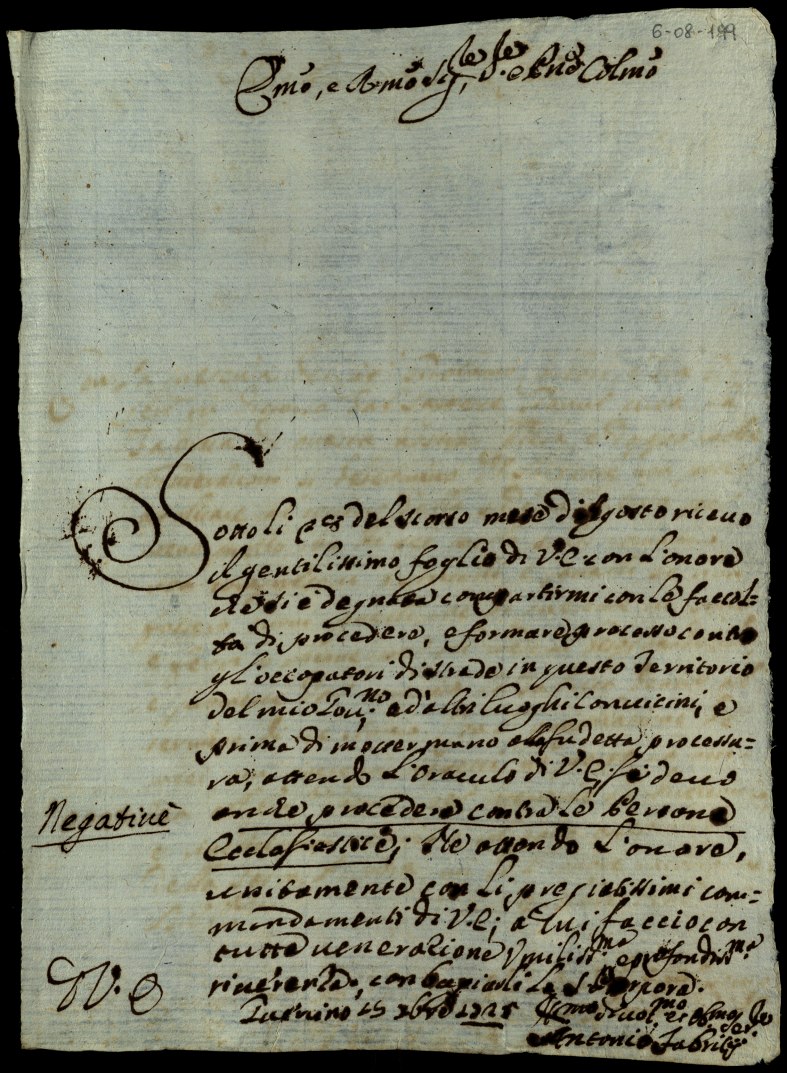 6-08-199
Emo, e Rmo Sig.re, Sre e Pne Colmo
Sotto li 28 del scorso mese di Agosto riceuo
il gentilissimo foglio di V.E. con l'onore
che si è degnata compartirmi con le facol=
tà di procedere, e formare processo contro
gl'occupatori di strade in questo Territorio
del mio Gou.no, ed'altri luoghi conuicini, e
prima di metter mano alla sudetta processu=
ra, attendo l'oraculo di V.E. se deuo
anche procedere contra le Persone
Negatiuè
Ecclesiastice; Ne attendo l'onore,
unitamente con li pregiatissimi com=
mandamenti di V.E; a cui faccio con
tutta uenerazione umiliss.ma e profondiss.ma
riuerenza, con baciarli la S. Porpora.
V. E
15 7bre 1725
Antonio Fabritij